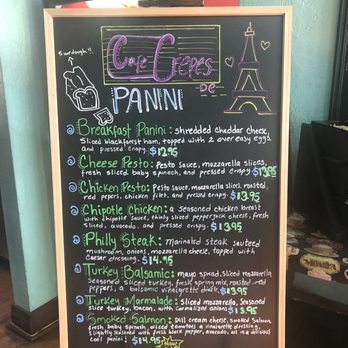 Sourdough!!
Cafe Crepes
De
PANINI
Breakfast Panini: shredded cheddar cheese,
Sliced blackforest ham, topped with 2 over easy eggs.
and pressed crispy. $12.95
Cheese Pesto: Pesto sauce, mozzarella slices,
fresh sliced baby spinach, and pressed crispy $13.95
Chicken Pesto: Pesto sauce, mozzarella slices, roasted,
red pepers, chicken filet, and pressed crispy. $13.95
Chipotle Chicken: a seasoned chicken breast
with chipotle sauce, thinly sliced pepperjack cheese, fresh
sliced, avocado, and pressed crispy. $13.95
Philly Steak: Marinated steak sauteed
mushroom, onions, mozzarella cheese, topped with
Caesar dressing. $14.95
Turkey Balsamic: mayo spread, Sliced mozzarella
Seasoned sliced turkey, fresh spring mix, roasted red
peppers, & balsamic vinaigrette $13.95
Turkey Marmalade: Sliced mozzarella, Seasoned
slice turkey, bacon, with caramalized onions $13.95
Smoked Salmon: Dill cream cheese, smoked salmon,
fresh baby spinach, diced tomatoes & vinaigrette dressing,
lightly seasoned with fresh black pepper, avocado, all in a delicious
panini! $14.95